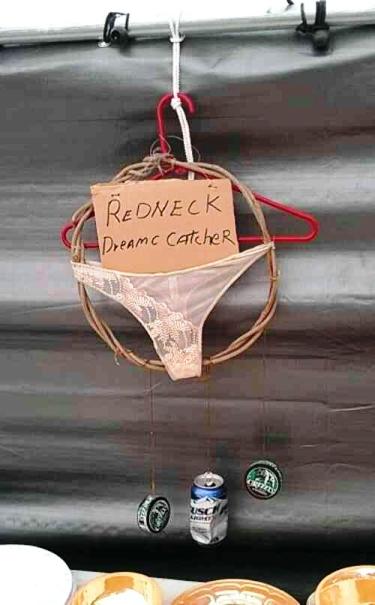 REDNECK
Dreamc catcher
BUSCH
LIGHT